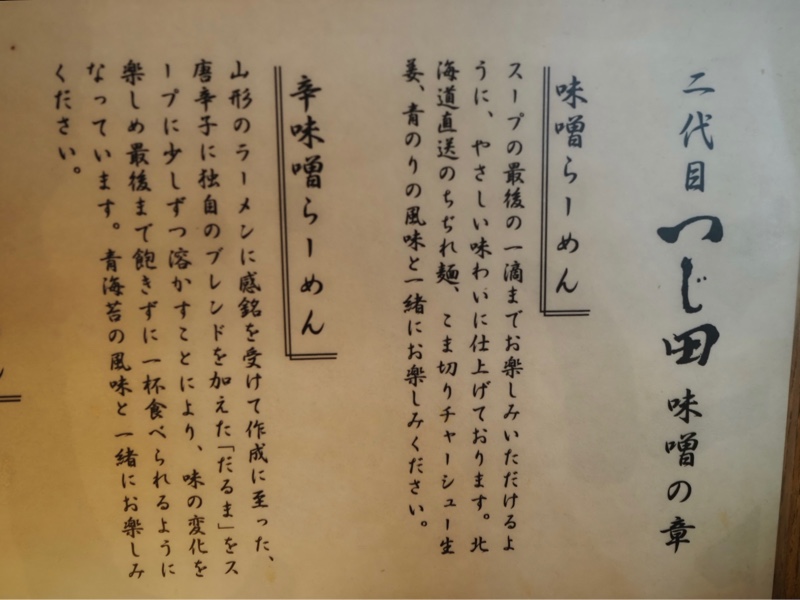 二代目つじ田 味噌の章
味噌らーめん
スープの最後の一滴までお楽しみいただけるよ
うに、やさしい味わいに仕上げております。北
海道直送のちぢれ麺、こま切りチャーシュー生
姜、青のりの風味と一緒にお楽しみください。
辛味噌らーめん
山形のラーメンに感銘を受けて作成に至った、
唐辛子に独自のブレンドを加えた「だるま」をス
ープに少しずつ溶かすことにより、味の変化を
楽しめ最後まで飽きずに一杯食べられるように
なっています。青海苔の風味と一緒にお楽しみ
ください。